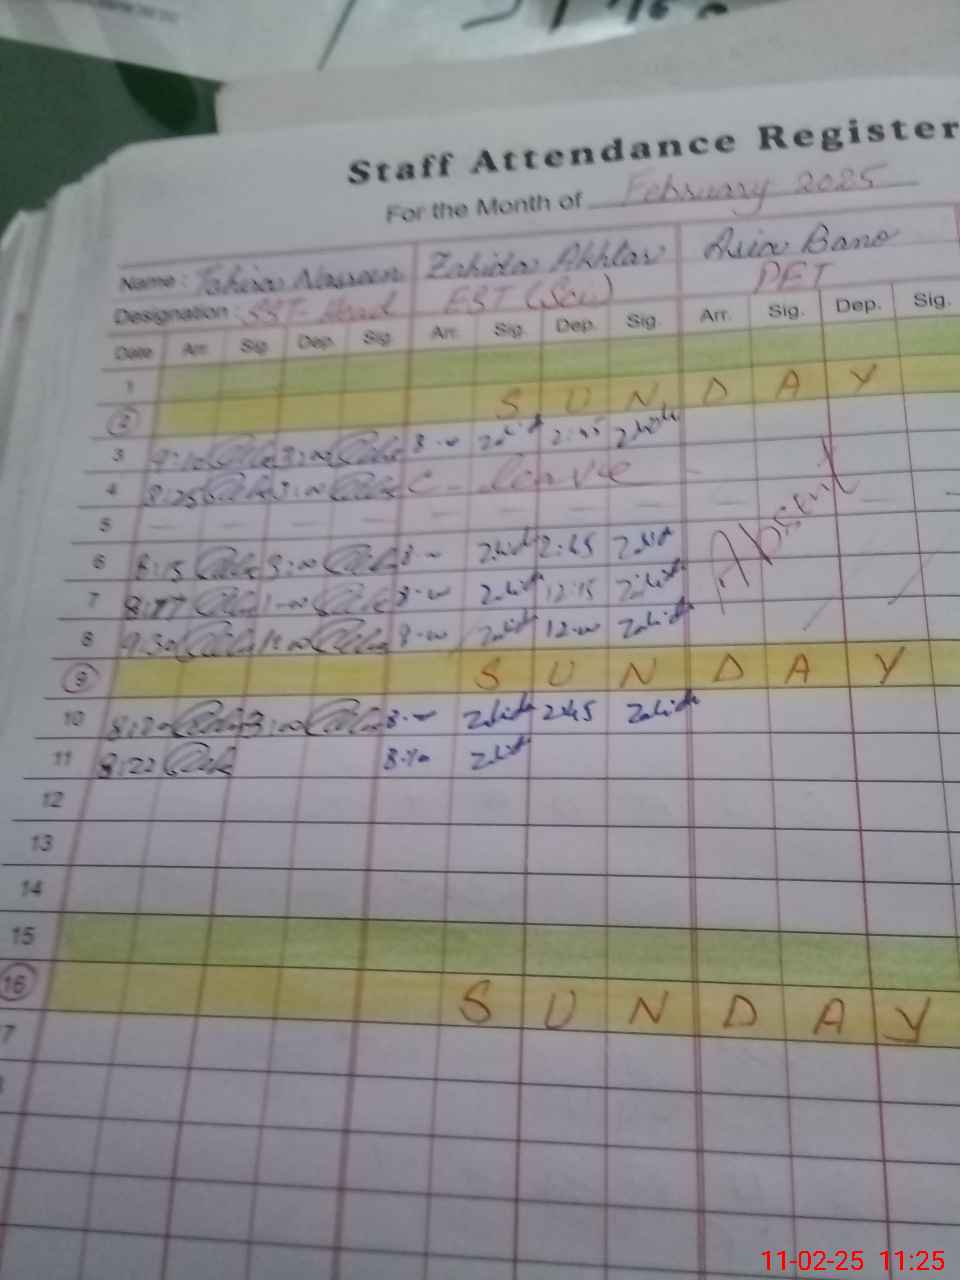 Staff Attendance Register
For the Month of February 2025
Name : Tahira Nasreen Zahida Akhtar Asia Bano
Designation : SST- Head EST (Sci.) PET
Date Arr. Sig. Dep. Sig. Arr. Sig. Dep. Sig. Arr. Sig. Dep. Sig.
1
2 S U N D A Y
3 9:10 3:00 8:00 Zahida 2:45 Zahida
4 8:25 3:00 C. Leave
5 — — — — — — — — — — — —
6 8:15 3:00 8:00 Zahida 2:45 Zahida Absent
7 8:17 1:00 8:00 Zahida 12:15 Zahida
8 9:30 8:00 Zahida 12:00 Zahida
9 S U N D A Y
10 8:20 3:00 8:00 Zahida 2:45 Zahida
11 8:22 Zahida
12
13
14
15
16 S U N D A Y
7
11-02-25 11:25